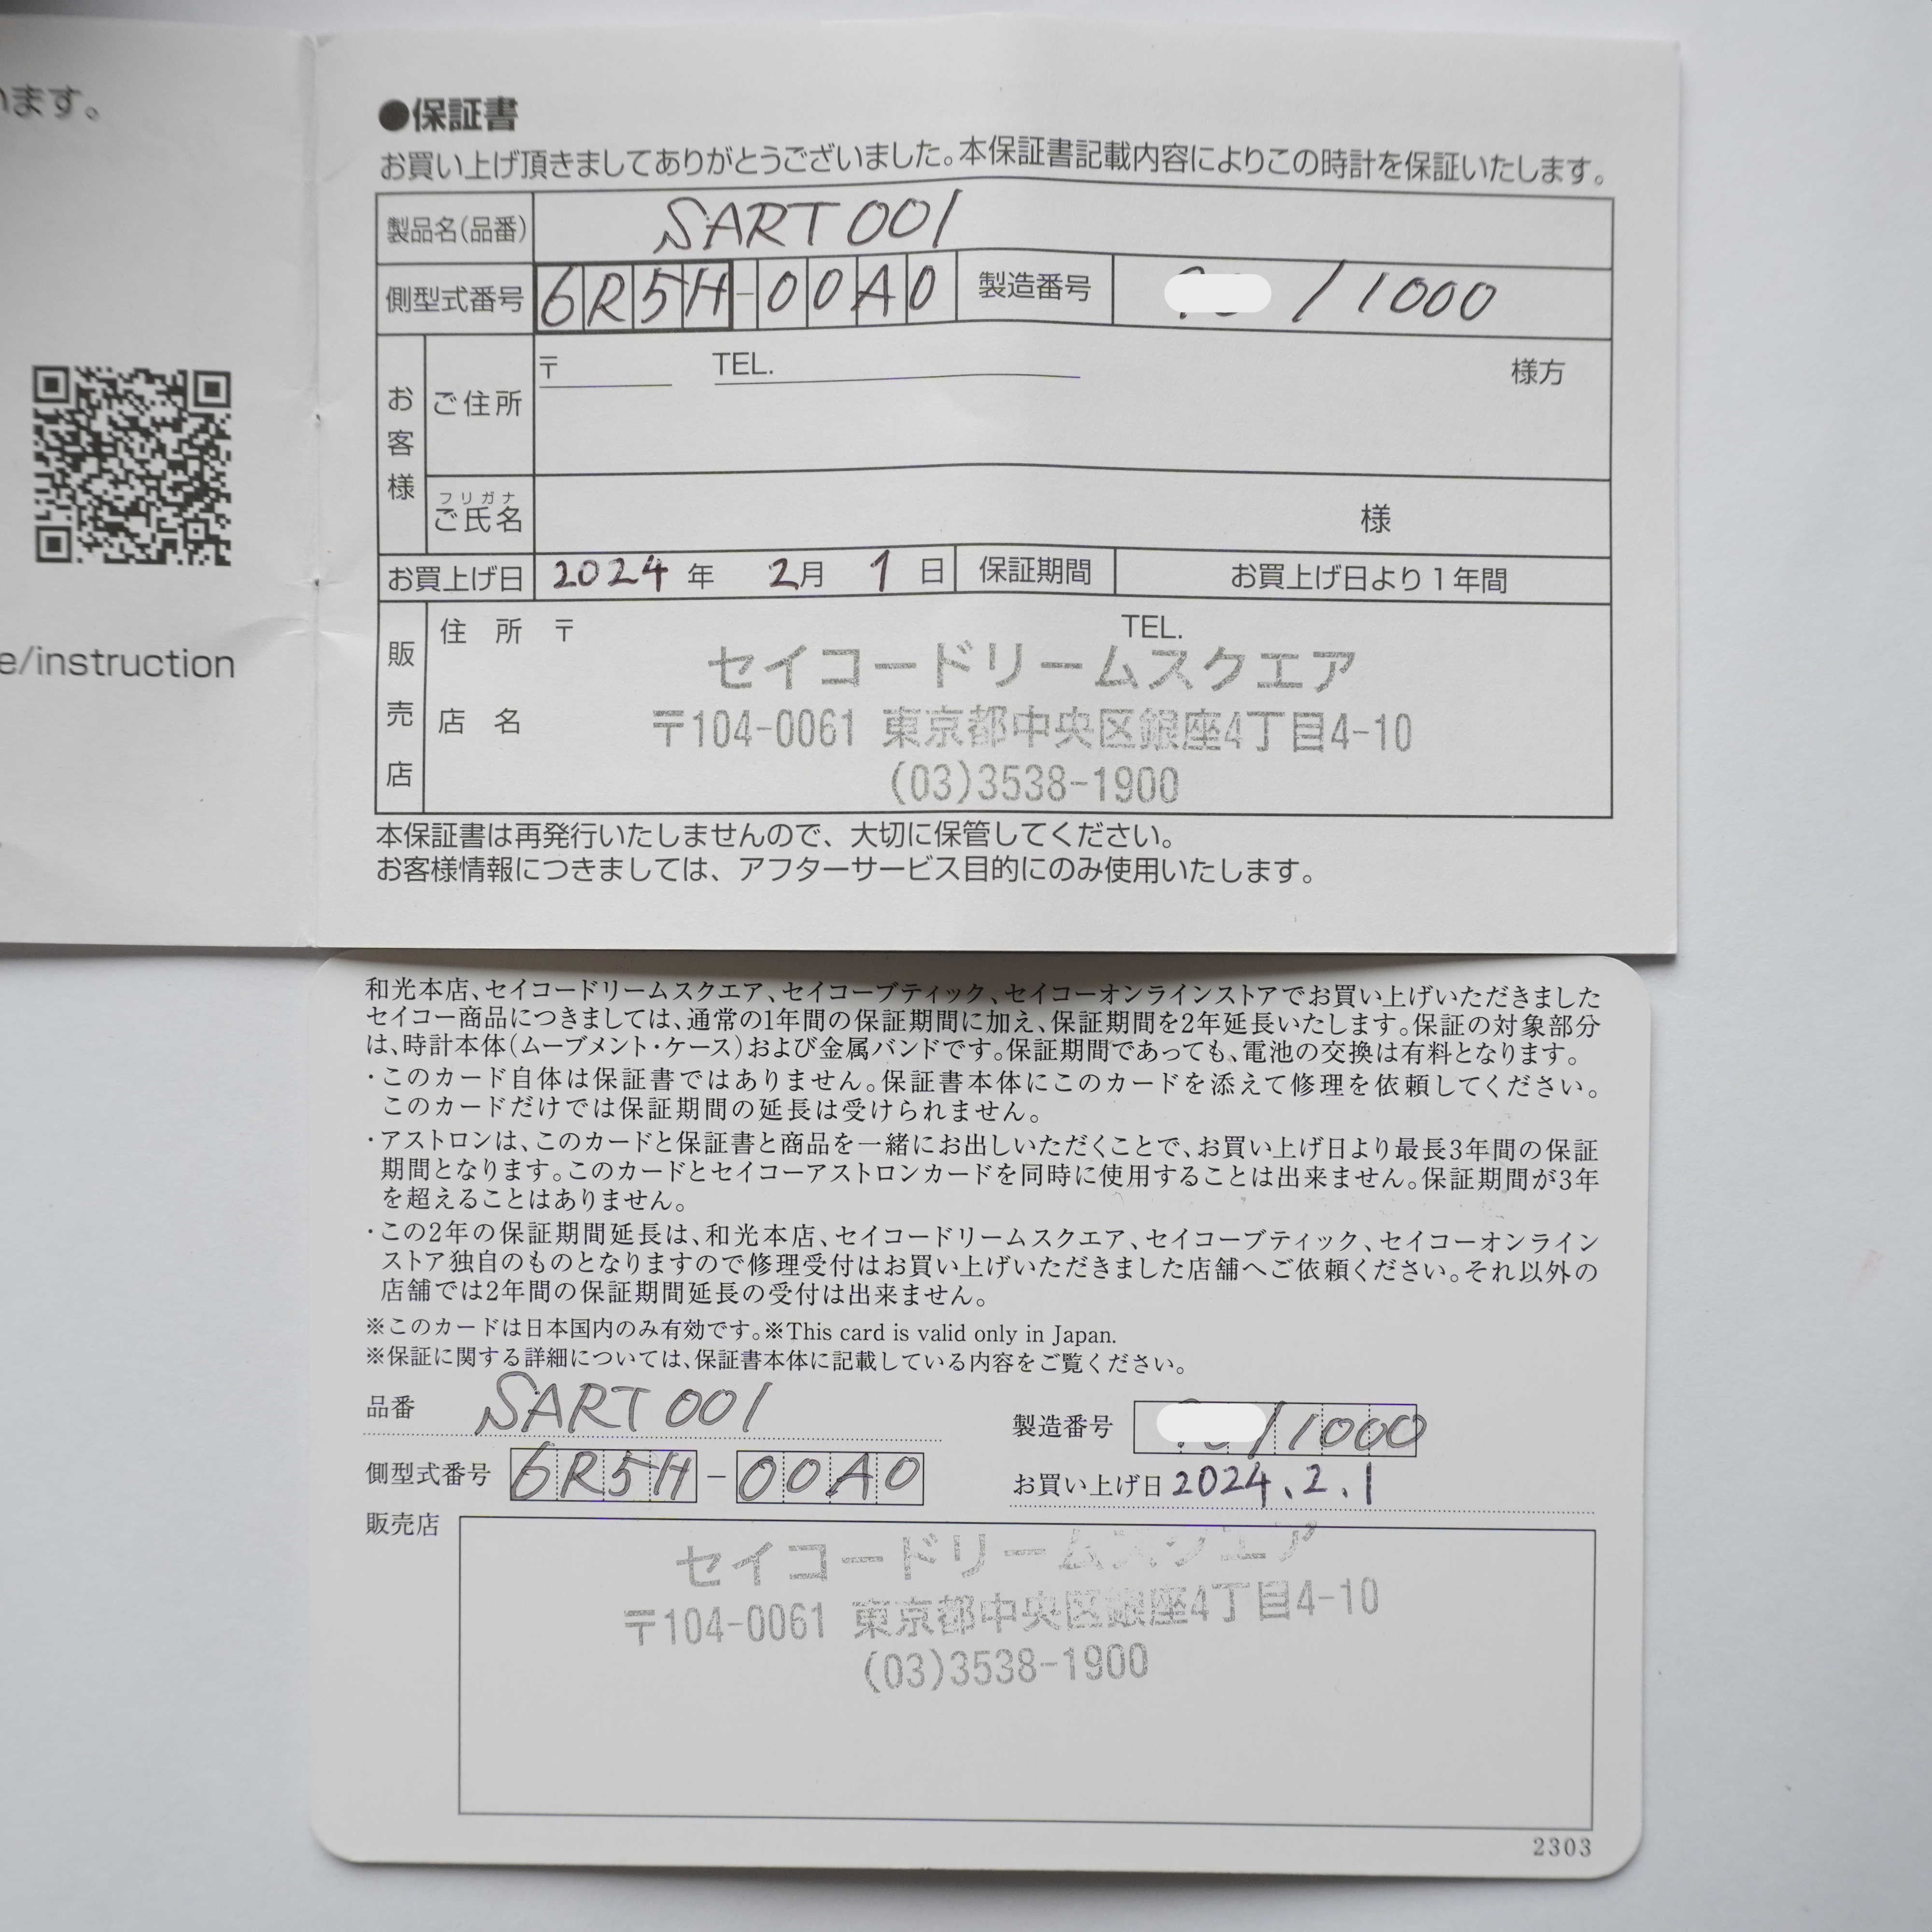 います。
e/instruction
●保証書
お買い上げ頂きましてありがとうございました。本保証書記載内容によりこの時計を保証いたします。
製品名(品番) SART001
側型式番号 6R5H-00A0 製造番号 /1000
お客様 ご住所 〒 TEL. 様方
フリガナ
ご氏名 様
お買上げ日 2024年 2月 1日 保証期間 お買上げ日より1年間
販売店 住所 〒 TEL.
セイコードリームスクエア
店名 〒104-0061 東京都中央区銀座4丁目4-10
(03)3538-1900
本保証書は再発行いたしませんので、大切に保管してください。
お客様情報につきましては、アフターサービス目的にのみ使用いたします。
和光本店、セイコードリームスクエア、セイコーブティック、セイコーオンラインストアでお買い上げいただきました
セイコー商品につきましては、通常の1年間の保証期間に加え、保証期間を2年延長いたします。保証の対象部分
は、時計本体(ムーブメント・ケース)および金属バンドです。保証期間であっても、電池の交換は有料となります。
・このカード自体は保証書ではありません。保証書本体にこのカードを添えて修理を依頼してください。
このカードだけでは保証期間の延長は受けられません。
・アストロンは、このカードと保証書と商品を一緒にお出しいただくことで、お買い上げ日より最長3年間の保証
期間となります。このカードとセイコーアストロンカードを同時に使用することは出来ません。保証期間が3年
を超えることはありません。
・この2年の保証期間延長は、和光本店、セイコードリームスクエア、セイコーブティック、セイコーオンライン
ストア独自のものとなりますので修理受付はお買い上げいただきました店舗へご依頼ください。それ以外の
店舗では2年間の保証期間延長の受付は出来ません。
※このカードは日本国内のみ有効です。※This card is valid only in Japan.
※保証に関する詳細については、保証書本体に記載している内容をご覧ください。
品番 SART001
製造番号 /1000
側型式番号 6R5H-00A0
お買い上げ日 2024.2.1
販売店
セイコードリームスクエア
〒104-0061 東京都中央区銀座4丁目4-10
(03)3538-1900
2303